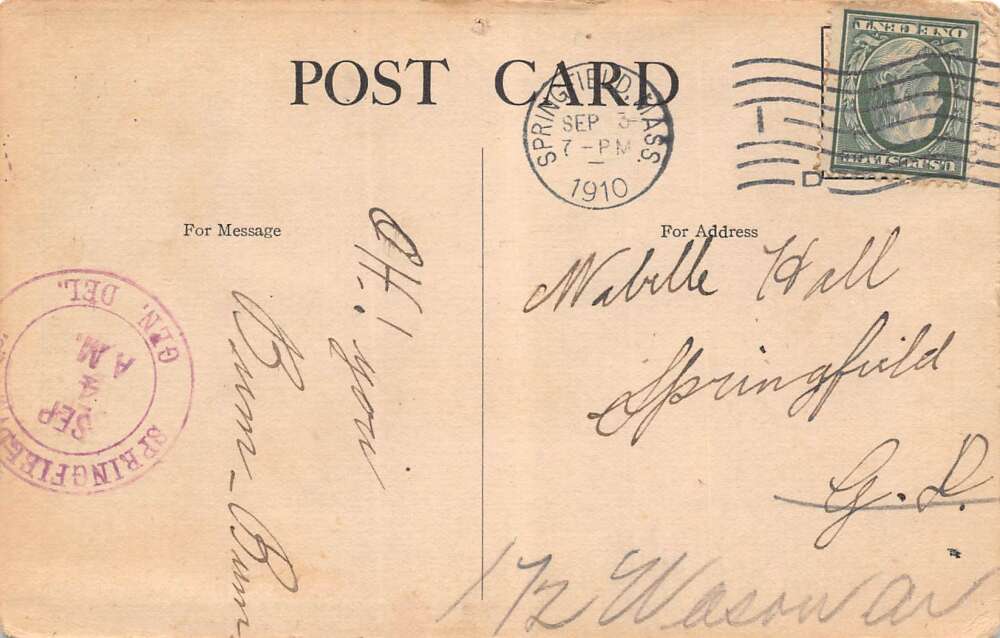 POST CARD
SPRINGFIELD, MASS.
SEP 3-
7 - PM
1910
D
ONE CENT
U.S. POSTAGE
For Message
For Address
Oh! you
Bum-Bum
Mabelle Hall
Springfield
G. D.
172 Wason Av
GEN. DEL.
SEP
A.M.
SPRINGFIELD